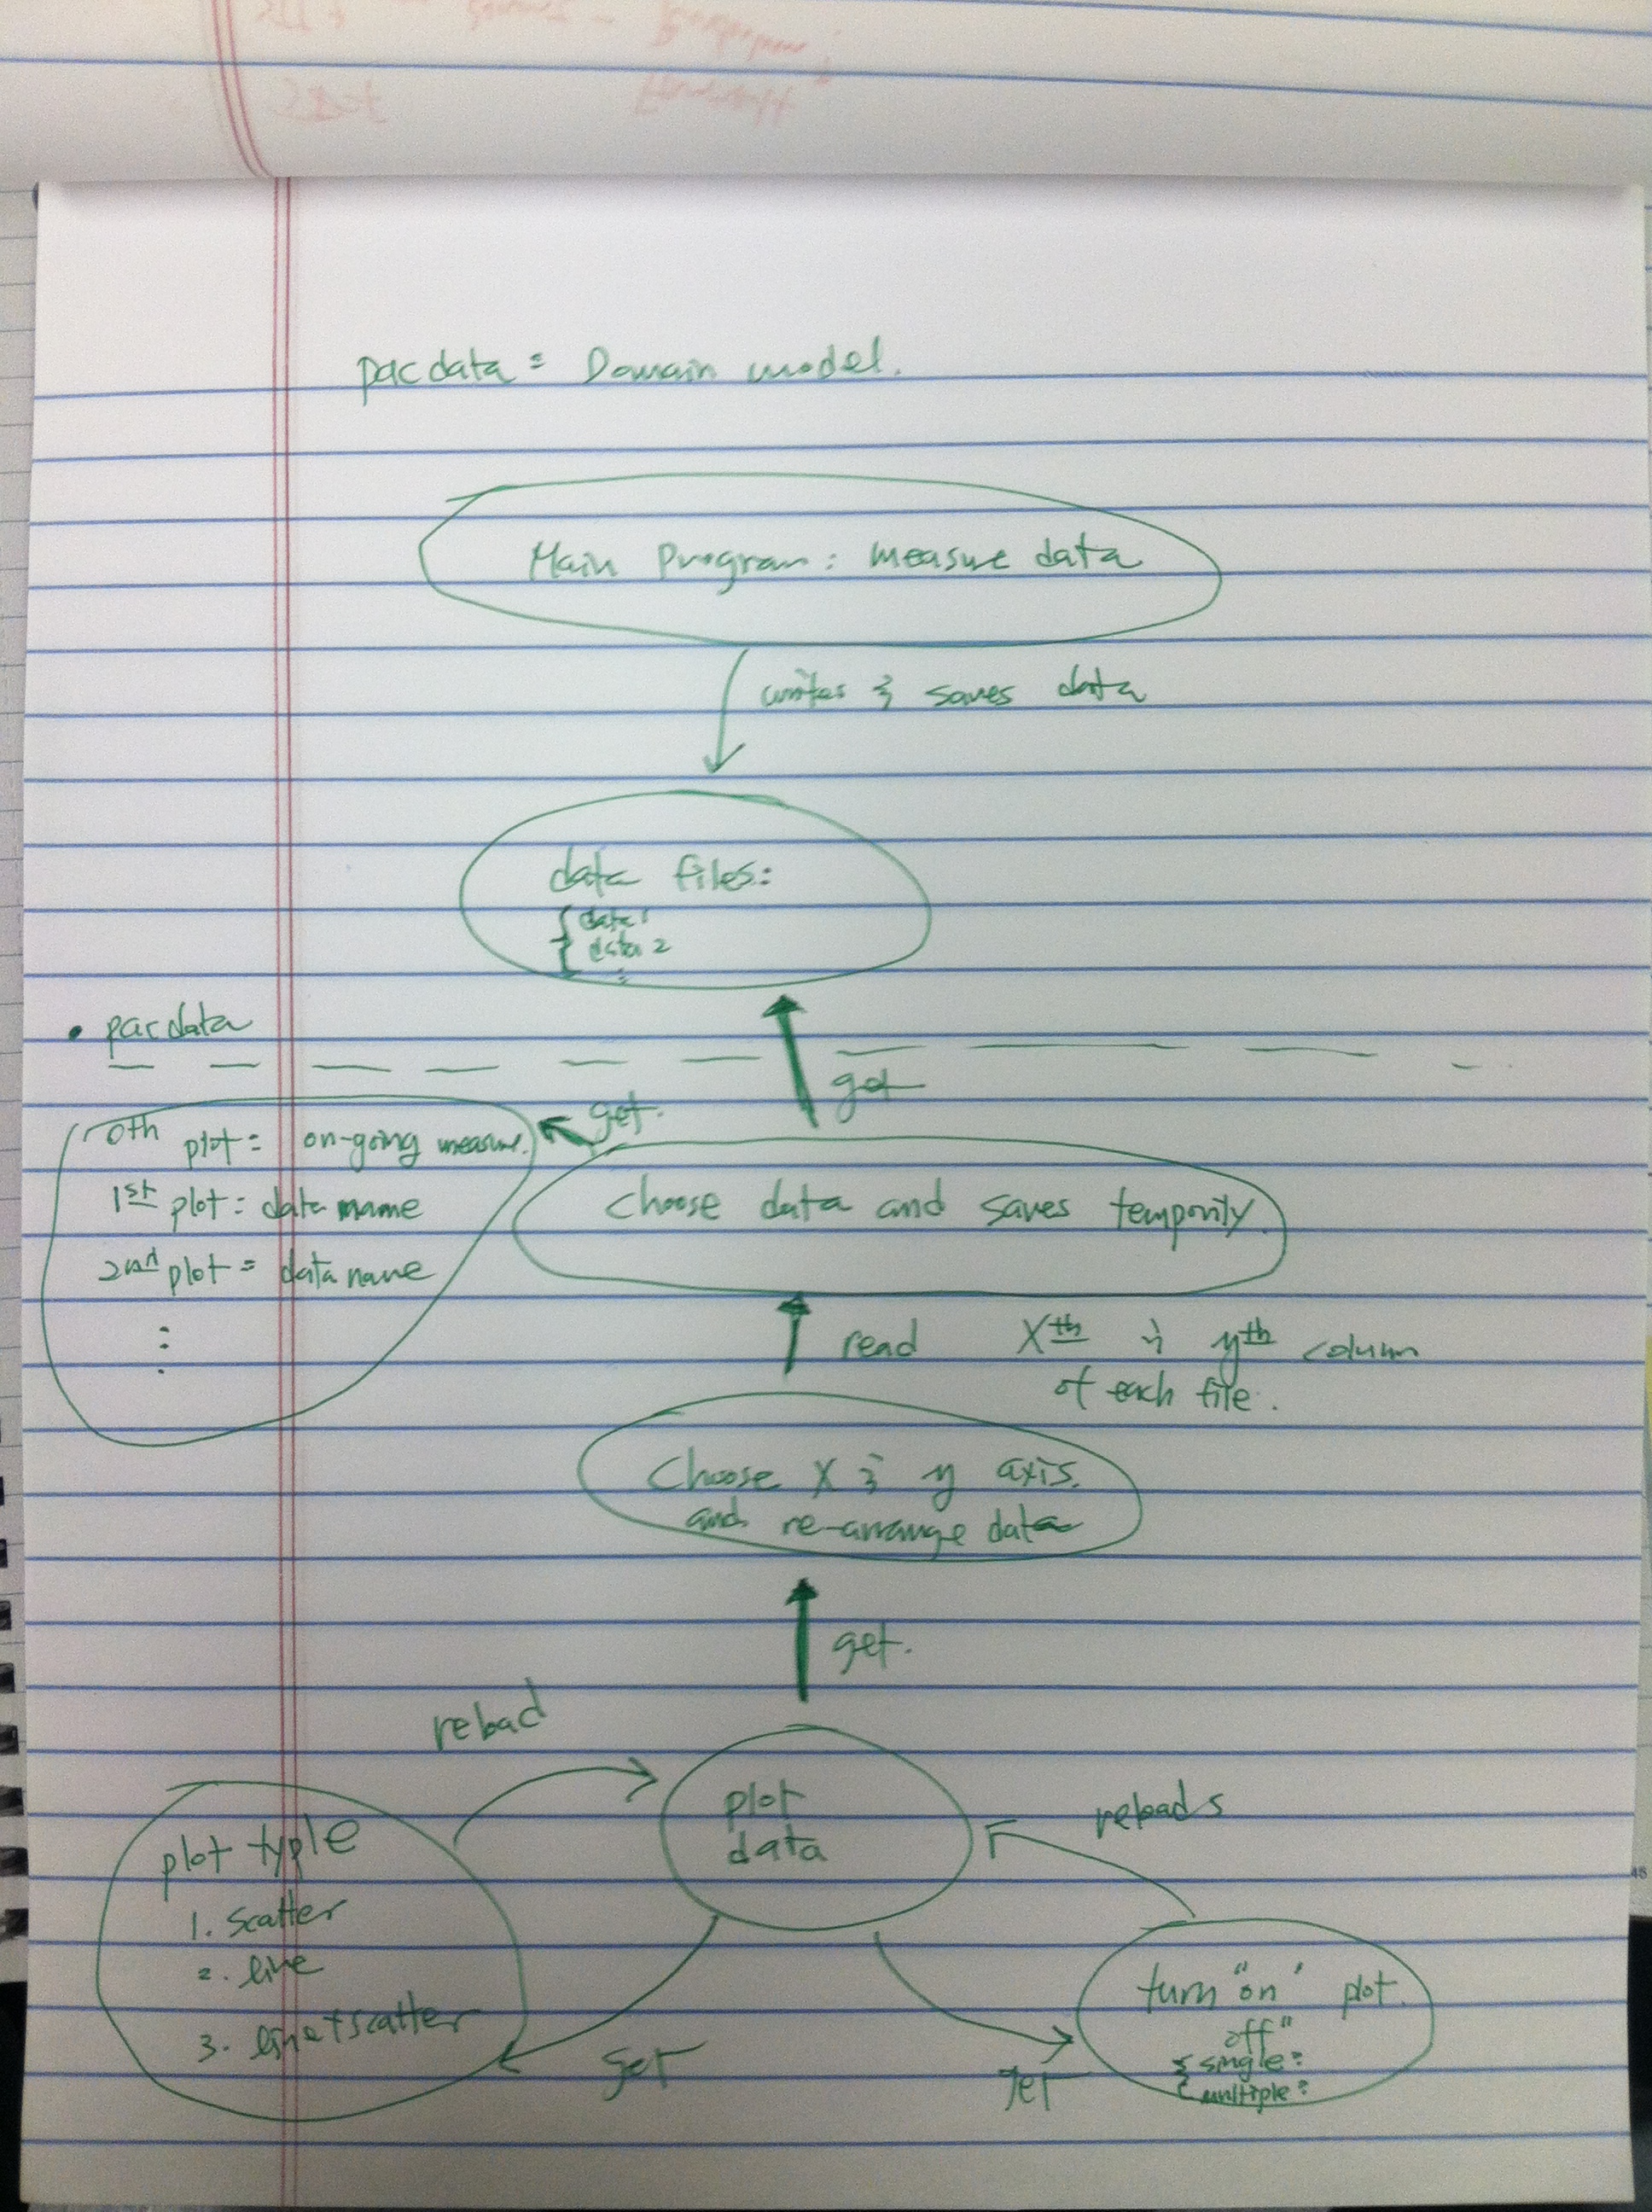 pacdata = Domain model.
Main Program: measure data
writes & saves data
data files:
data 1
data 2
• pacdata
get
get.
0th plot = on-going measure.
1st plot: data name
2nd plot = data name
Choose data and saves temporily.
read Xth & yth column
of each file.
Choose X & y axis.
and re-arrange data
get.
reload
plot
data
reloads
plot typle
1. Scatter
2. line
3. line+scatter
get
get
turn "on" plot.
off"
single:
multiple: